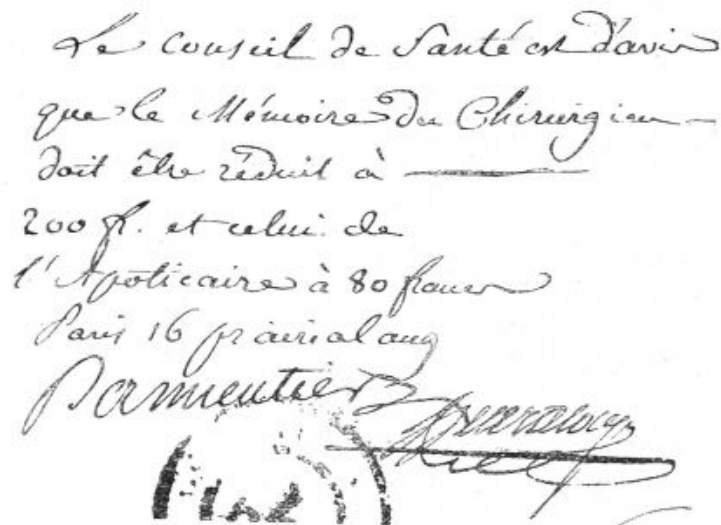 Le Conseil de Santé est d'avis
que le Mémoire du Chirurgien
doit être réduit à
200 fr. et celui de
l'Apoticaire à 80 francs
Paris 16 prairial an 9
Parmentier